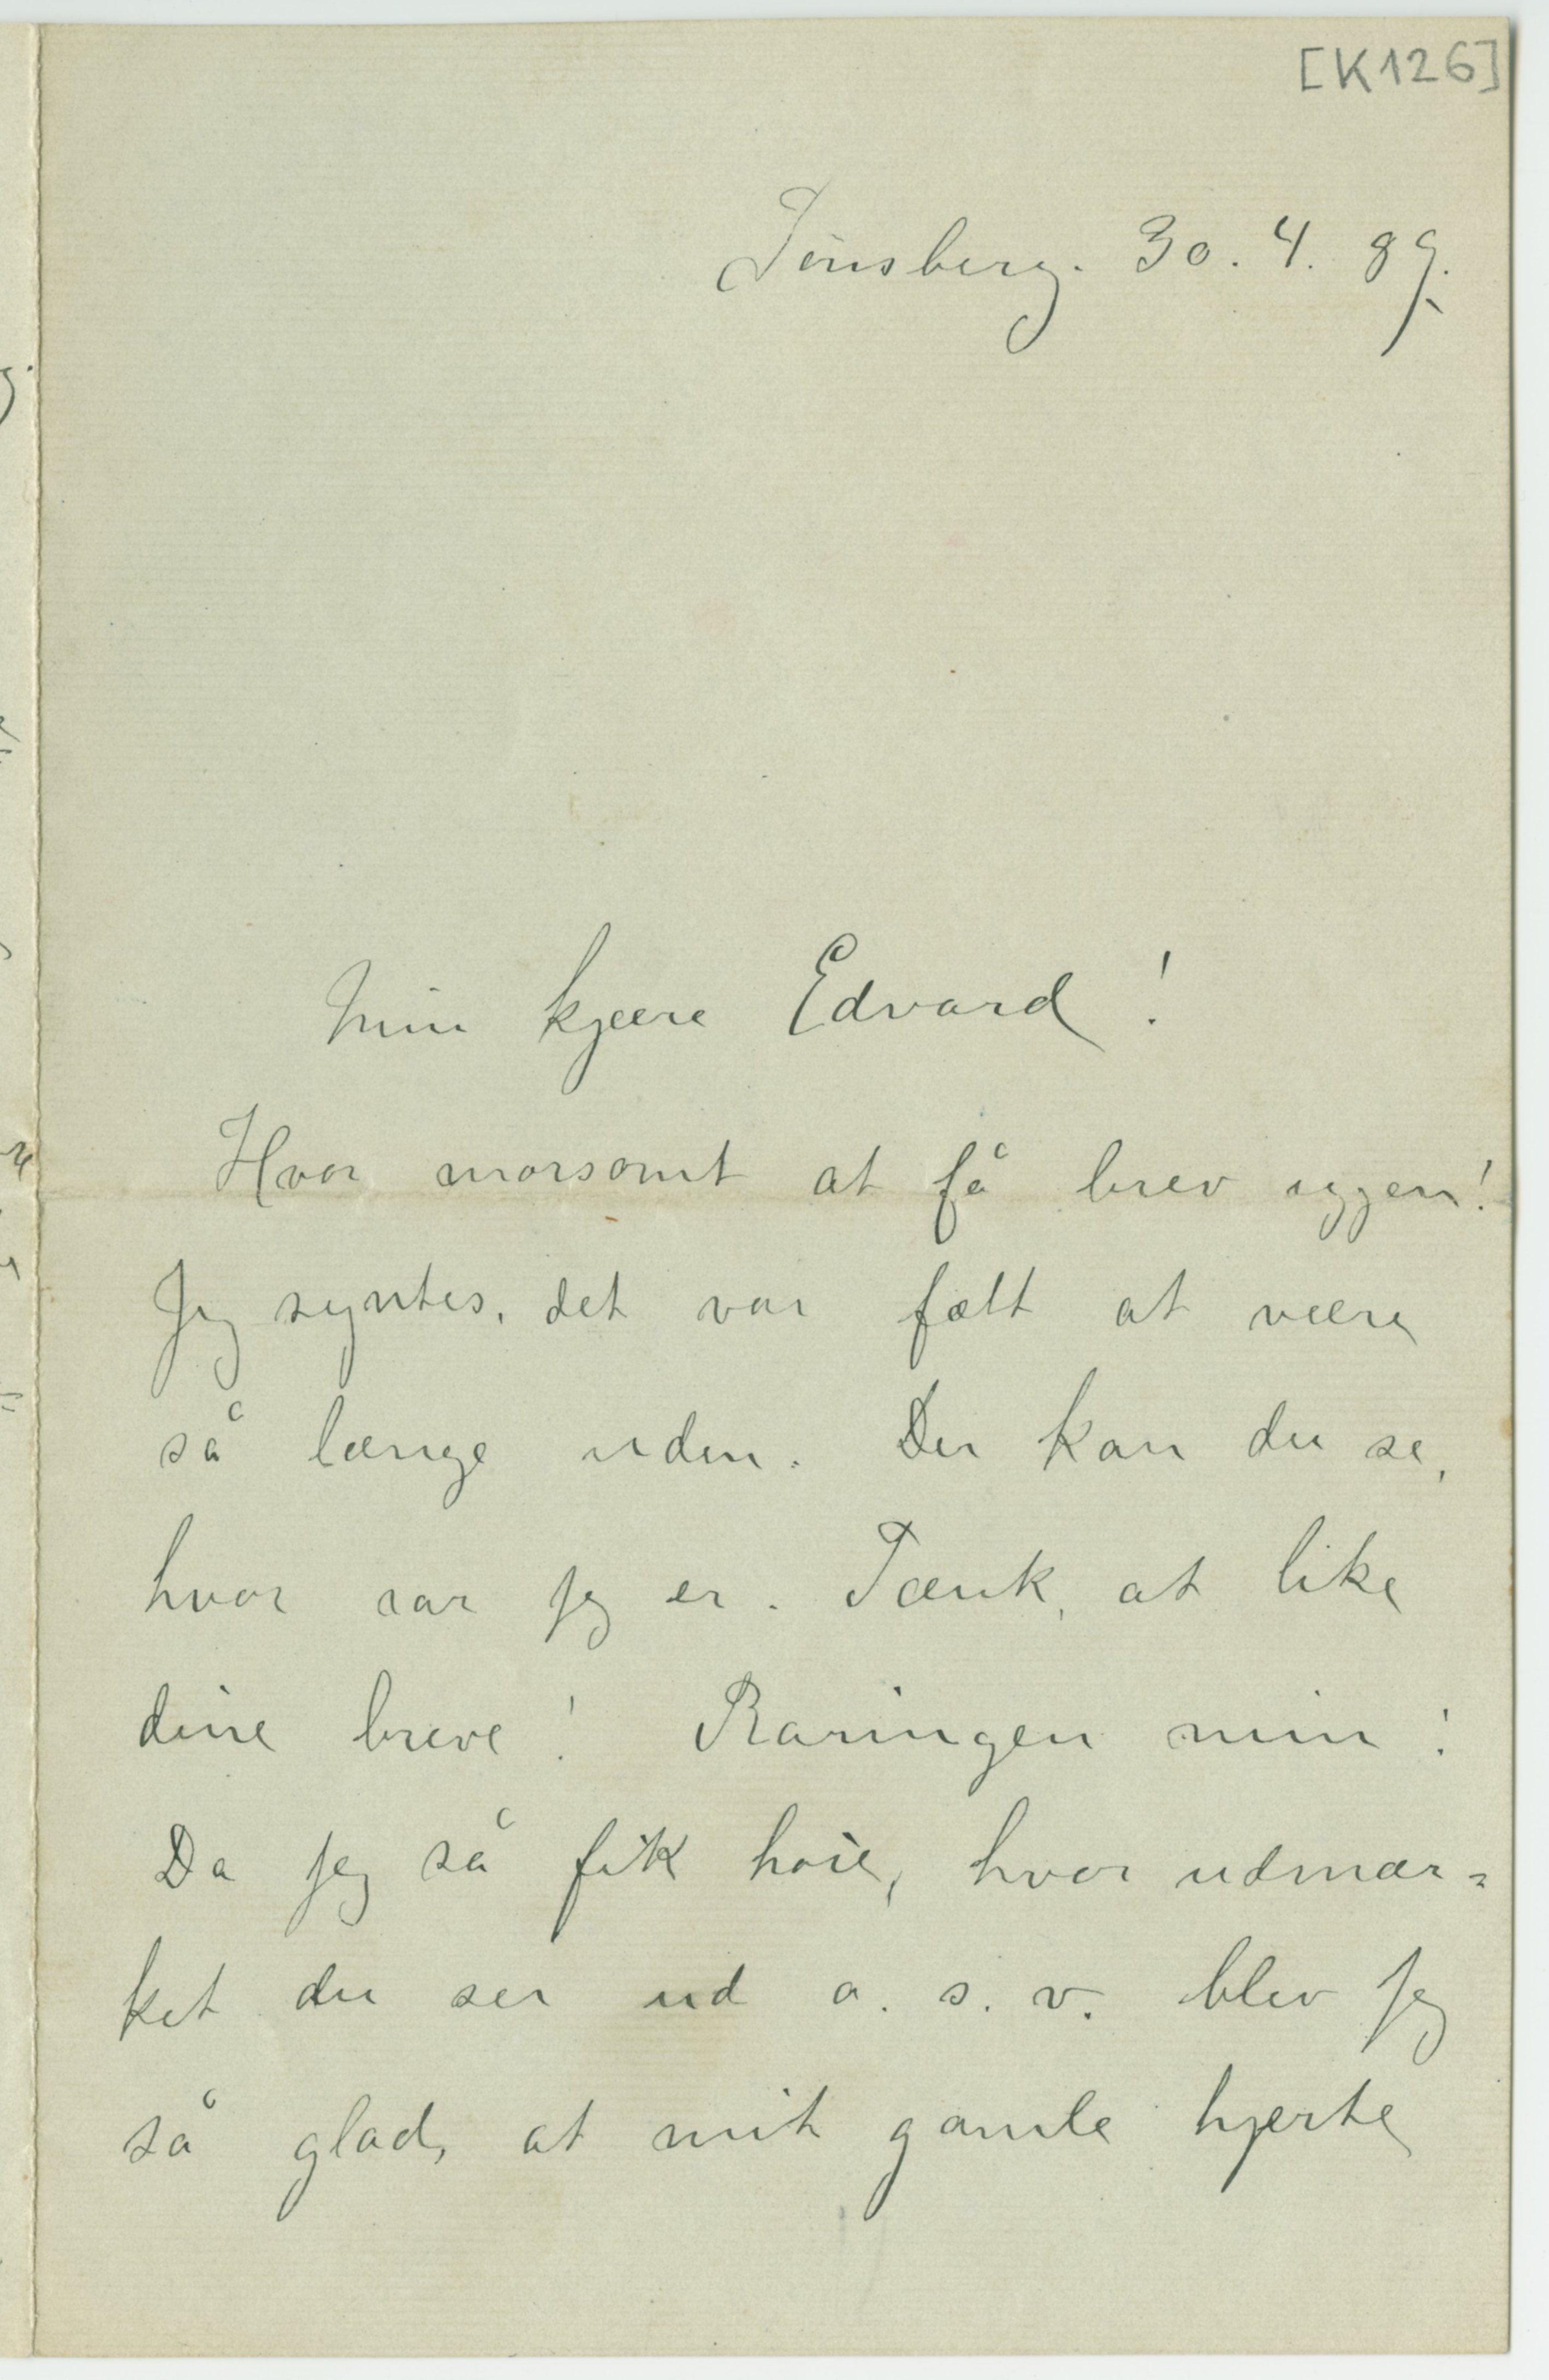 [K126]
Tönsberg. 30. 4. 89.
Min kjære Edvard!
Hvor morsomt at få brev iggen!
Jeg syntes, det var fælt at være
så længe uden. Der kan du se,
hvor rar jeg er. Tænk, at like
dine breve! Raringen min!
Da jeg så fik høre, hvor udmær=
ket du ser ud o. s. v. blev jeg
så glad, at mit gamle hjerte